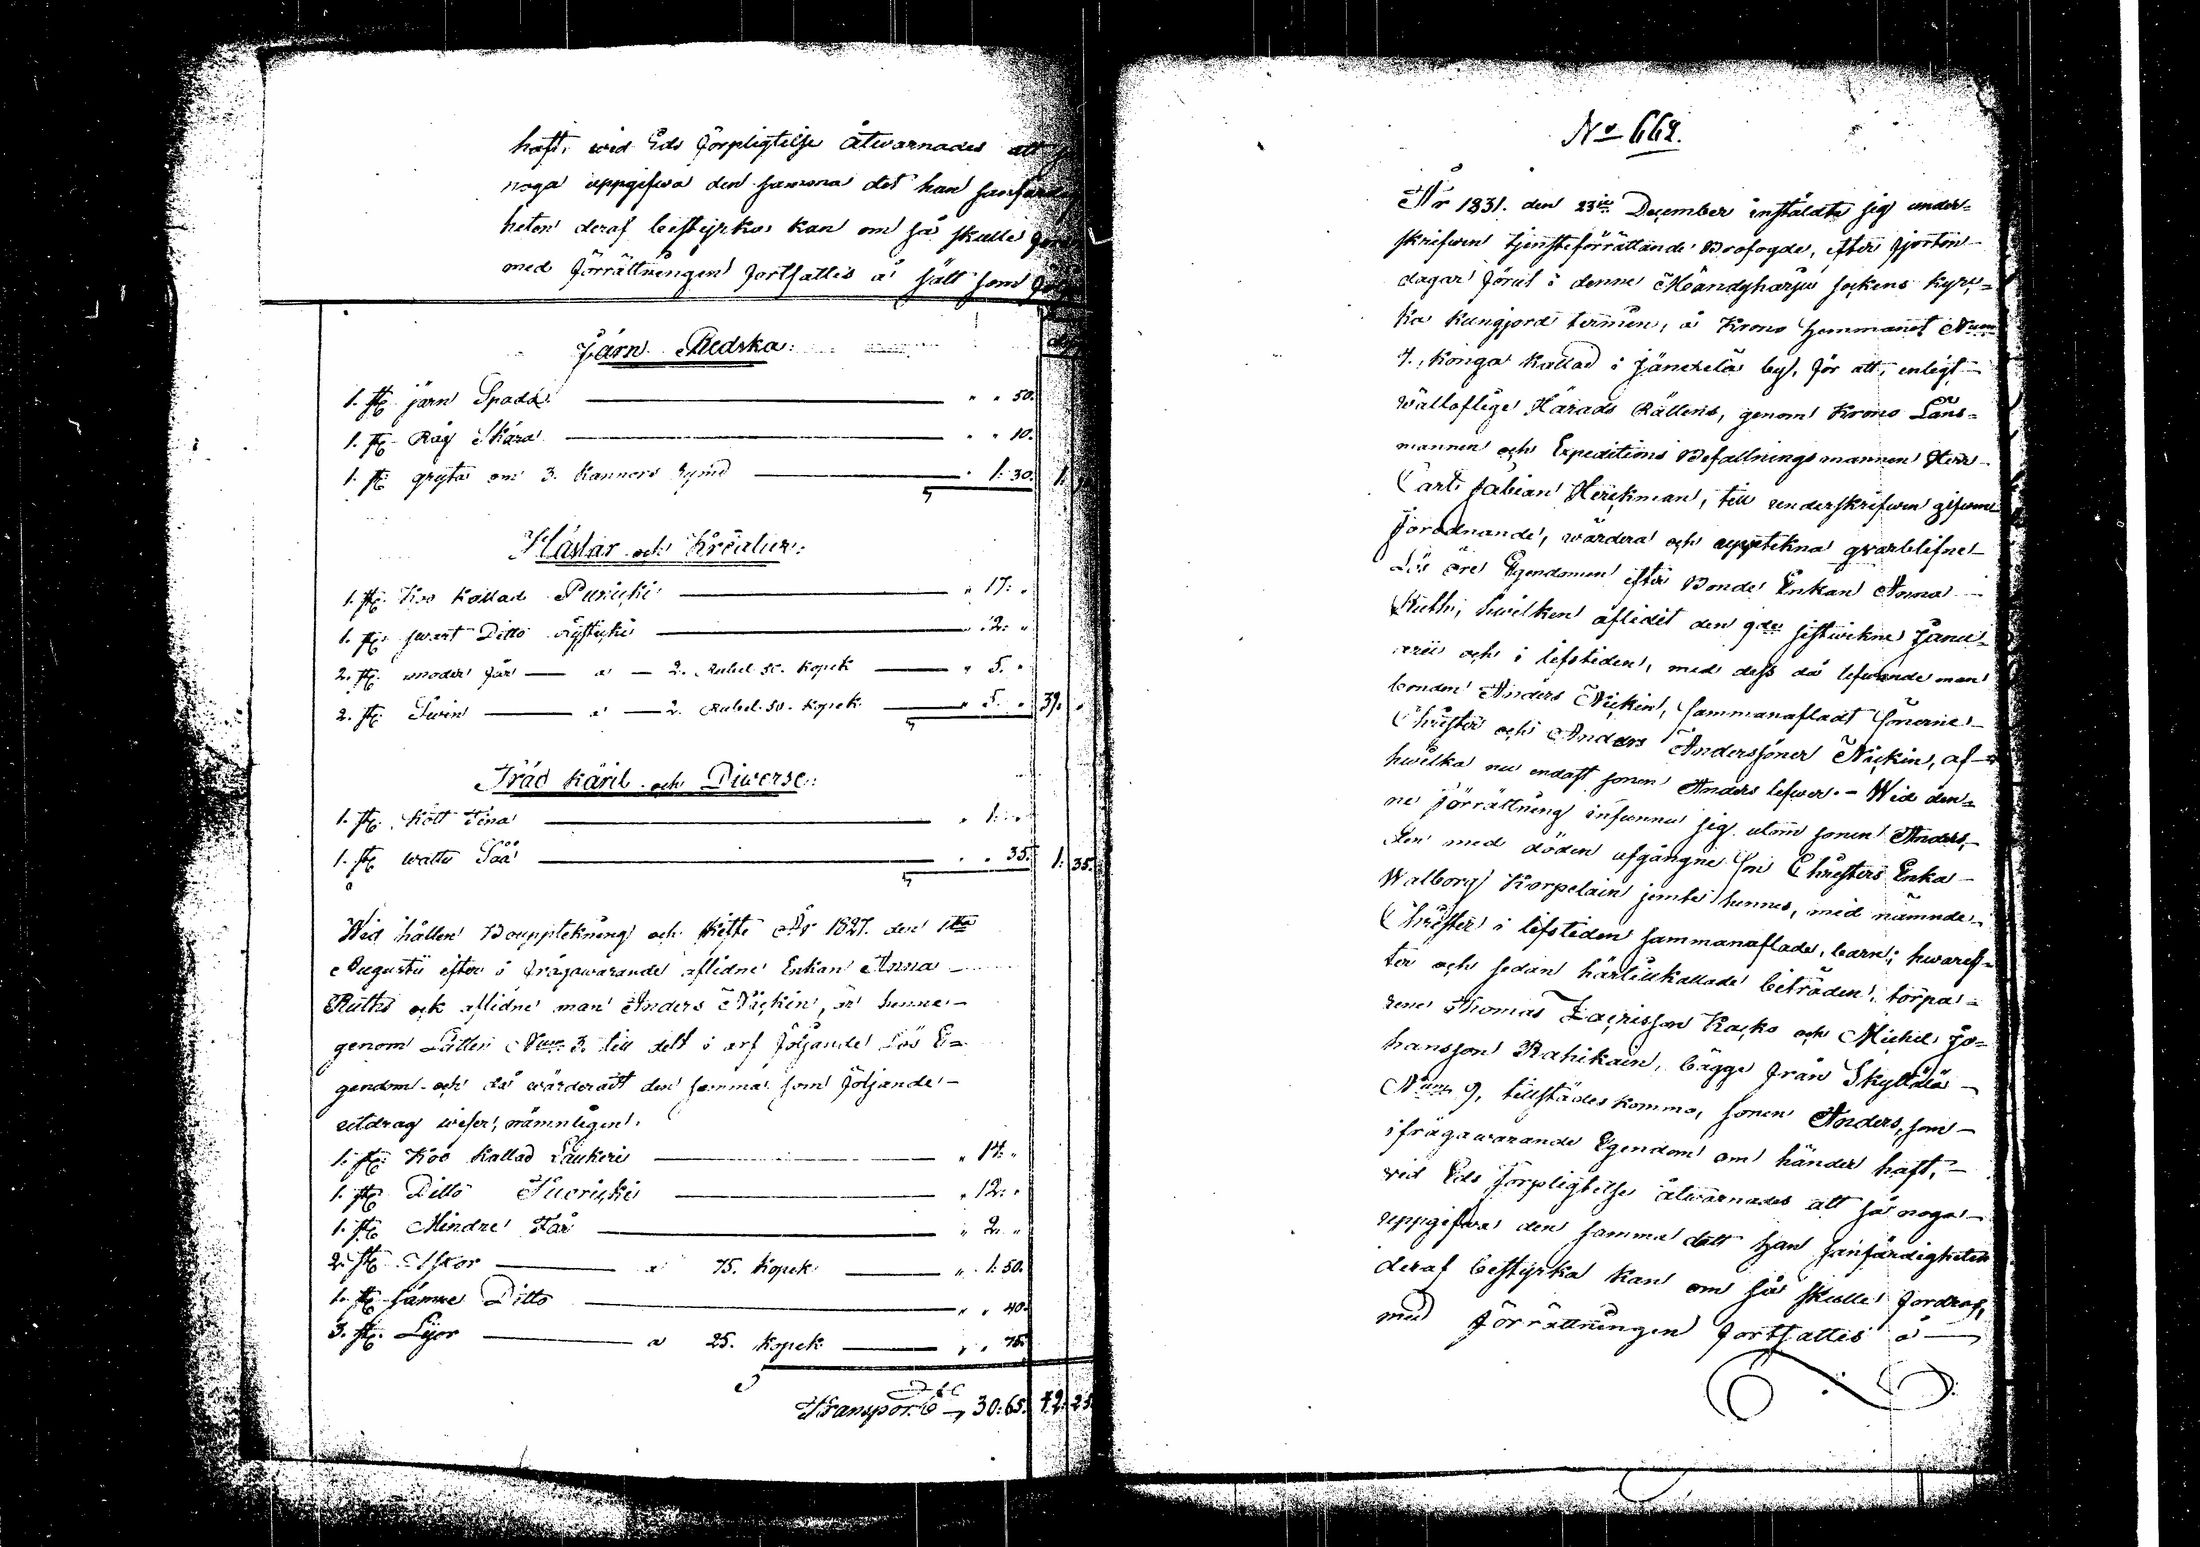 haft, wid Eds förpligtelse åtwarnades att så
noga uppgifwa den samma det han sanfärdig
heten deraf bestyrka kan om så skulle
med förrättningen fortsattis å sätt som
Järn Redska:
1. st. järn Spada " " 50.
1. st. Råg Skära " " 10.
1. st. gryta om 3. kannors rymd " 1: 30. 1:
Hästar och Kreatur:
1. st. Koo kallad " 17: "
1. st. swart Ditto " 12: "
2. st. moder får a 2. Rubel 50. Kopek " 5. "
2. st. Swin a 2. Rubel 50. Kopek " 5. " 39. "
Träd käril och Diverse:
1. st. kött Tina " 1: "
1. st. watte Såå " " 35. 1: 35.
Wid hållen Bouppteckning och skifte År 1827. den
Augustii efter i frågawarande aflidne Enkan Anna
Ruths ock aflidne man Anders Näckin, är henne
genom Litteri Num 3. till delt i arf följande Lös E=
gendom och då wärderadt den samma som följande
utdrag wiser, nämnligen:
1. st. Koo kallad Laukeri " 14: "
1. st. Ditto " 12: "
1. st. Mindre Får " 2. "
2. st. a 75. Kopek " 1: 50.
1. st. sämre Ditto " " 40.
3. st. Lijor a 25. Kopek " " 75.
Transport 30: 65. 42: 25.
No 662.
År 1831. den 23ie December instäldte sig under=
skrifwen tjensteförrättande Brofogde, efter fjorton
dagar förut i denne Mändyharju sockens kyrc=
ka kungjord termin, å Krono hemmanet Num
7. Konga kallad i by, för att, enligt
wällofliga Härads Rättens, genom Krono Läns=
mannen och Expeditions Befallningsmannen Herr
Carl Fabian Herckman, till underskrifwen gifwne
förordnande, wärdera och upptekna qwarblifne
Lös öre Egendomen efter Bonde Enkan Anna
Ruth, hwilken aflidit den 9de sistwekne Janu=
arii och i lifstiden, med dess då lefwande man
bonden Anders Näckin, sammanafladt Sönerne
Christer och Anders Anderssöner Näckin, af
hwilka nu endast sonen Anders lefwer. Wid den=
ne förrättning infunno sig utom sonen Anders,
den med döden afgångne son Christers Enka
Walborg Korpelain jemte hennes, med nämnde
Christer i lifstiden sammanaflade, barn; hwaref=
ter och sedan härtillkallade biträden, torpa=
rene Thomas Zacrisson Kacko och Michel Jo=
hansson Rahikain, bägge från Skyttälä
Num 9, tillstädes komma, sonen Anders, som
ifrågawarande Egendom om händer haft,
wid Eds förpligtelse åtwarnades att så noga
uppgifwa den samma datt han sanfärdigheten
deraf bestyrka kan om så skulle fordras,
med förrättningen fortsattis å